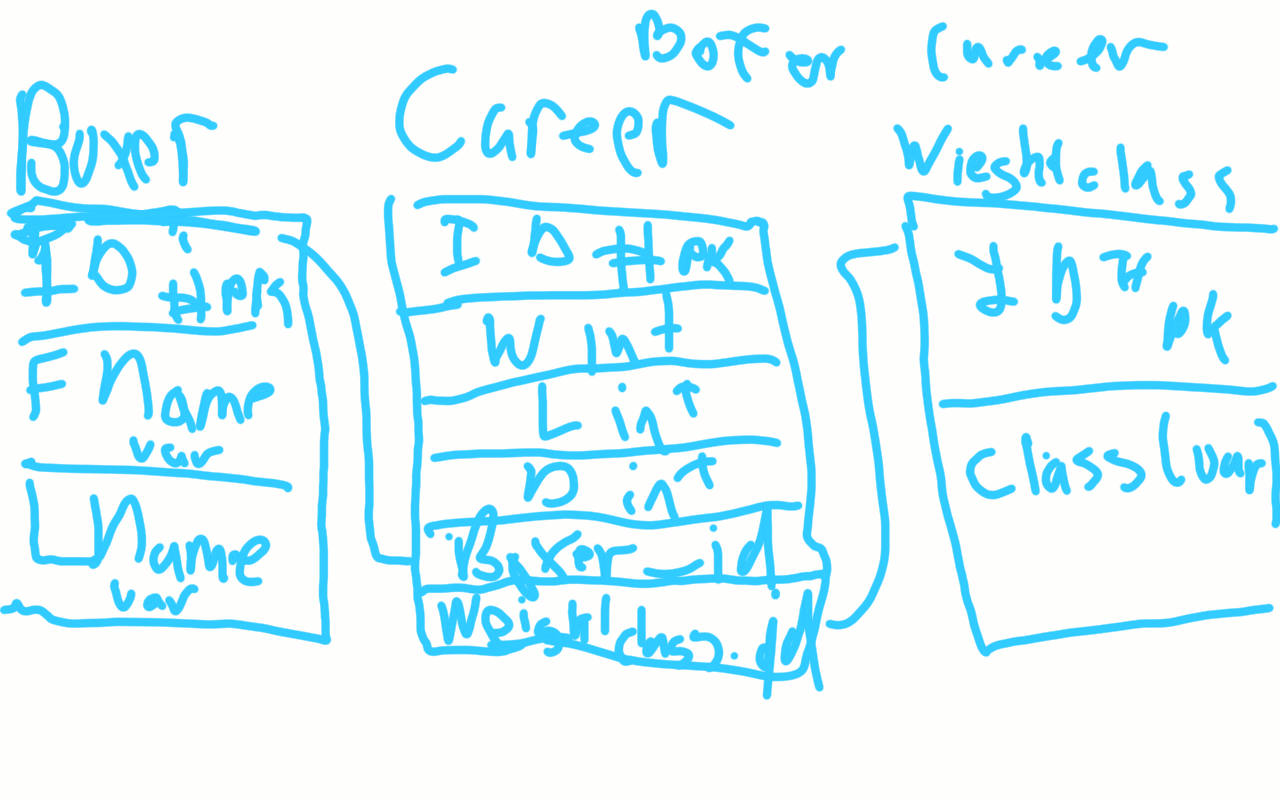 Boxer Career
Boxer
ID
#PK
F Name
var
L Name
var
Career
ID #PK
W Int
L int
D int
Boxer_id
Weightclass_id
Wieghtclass
ID #
pk
class(var)